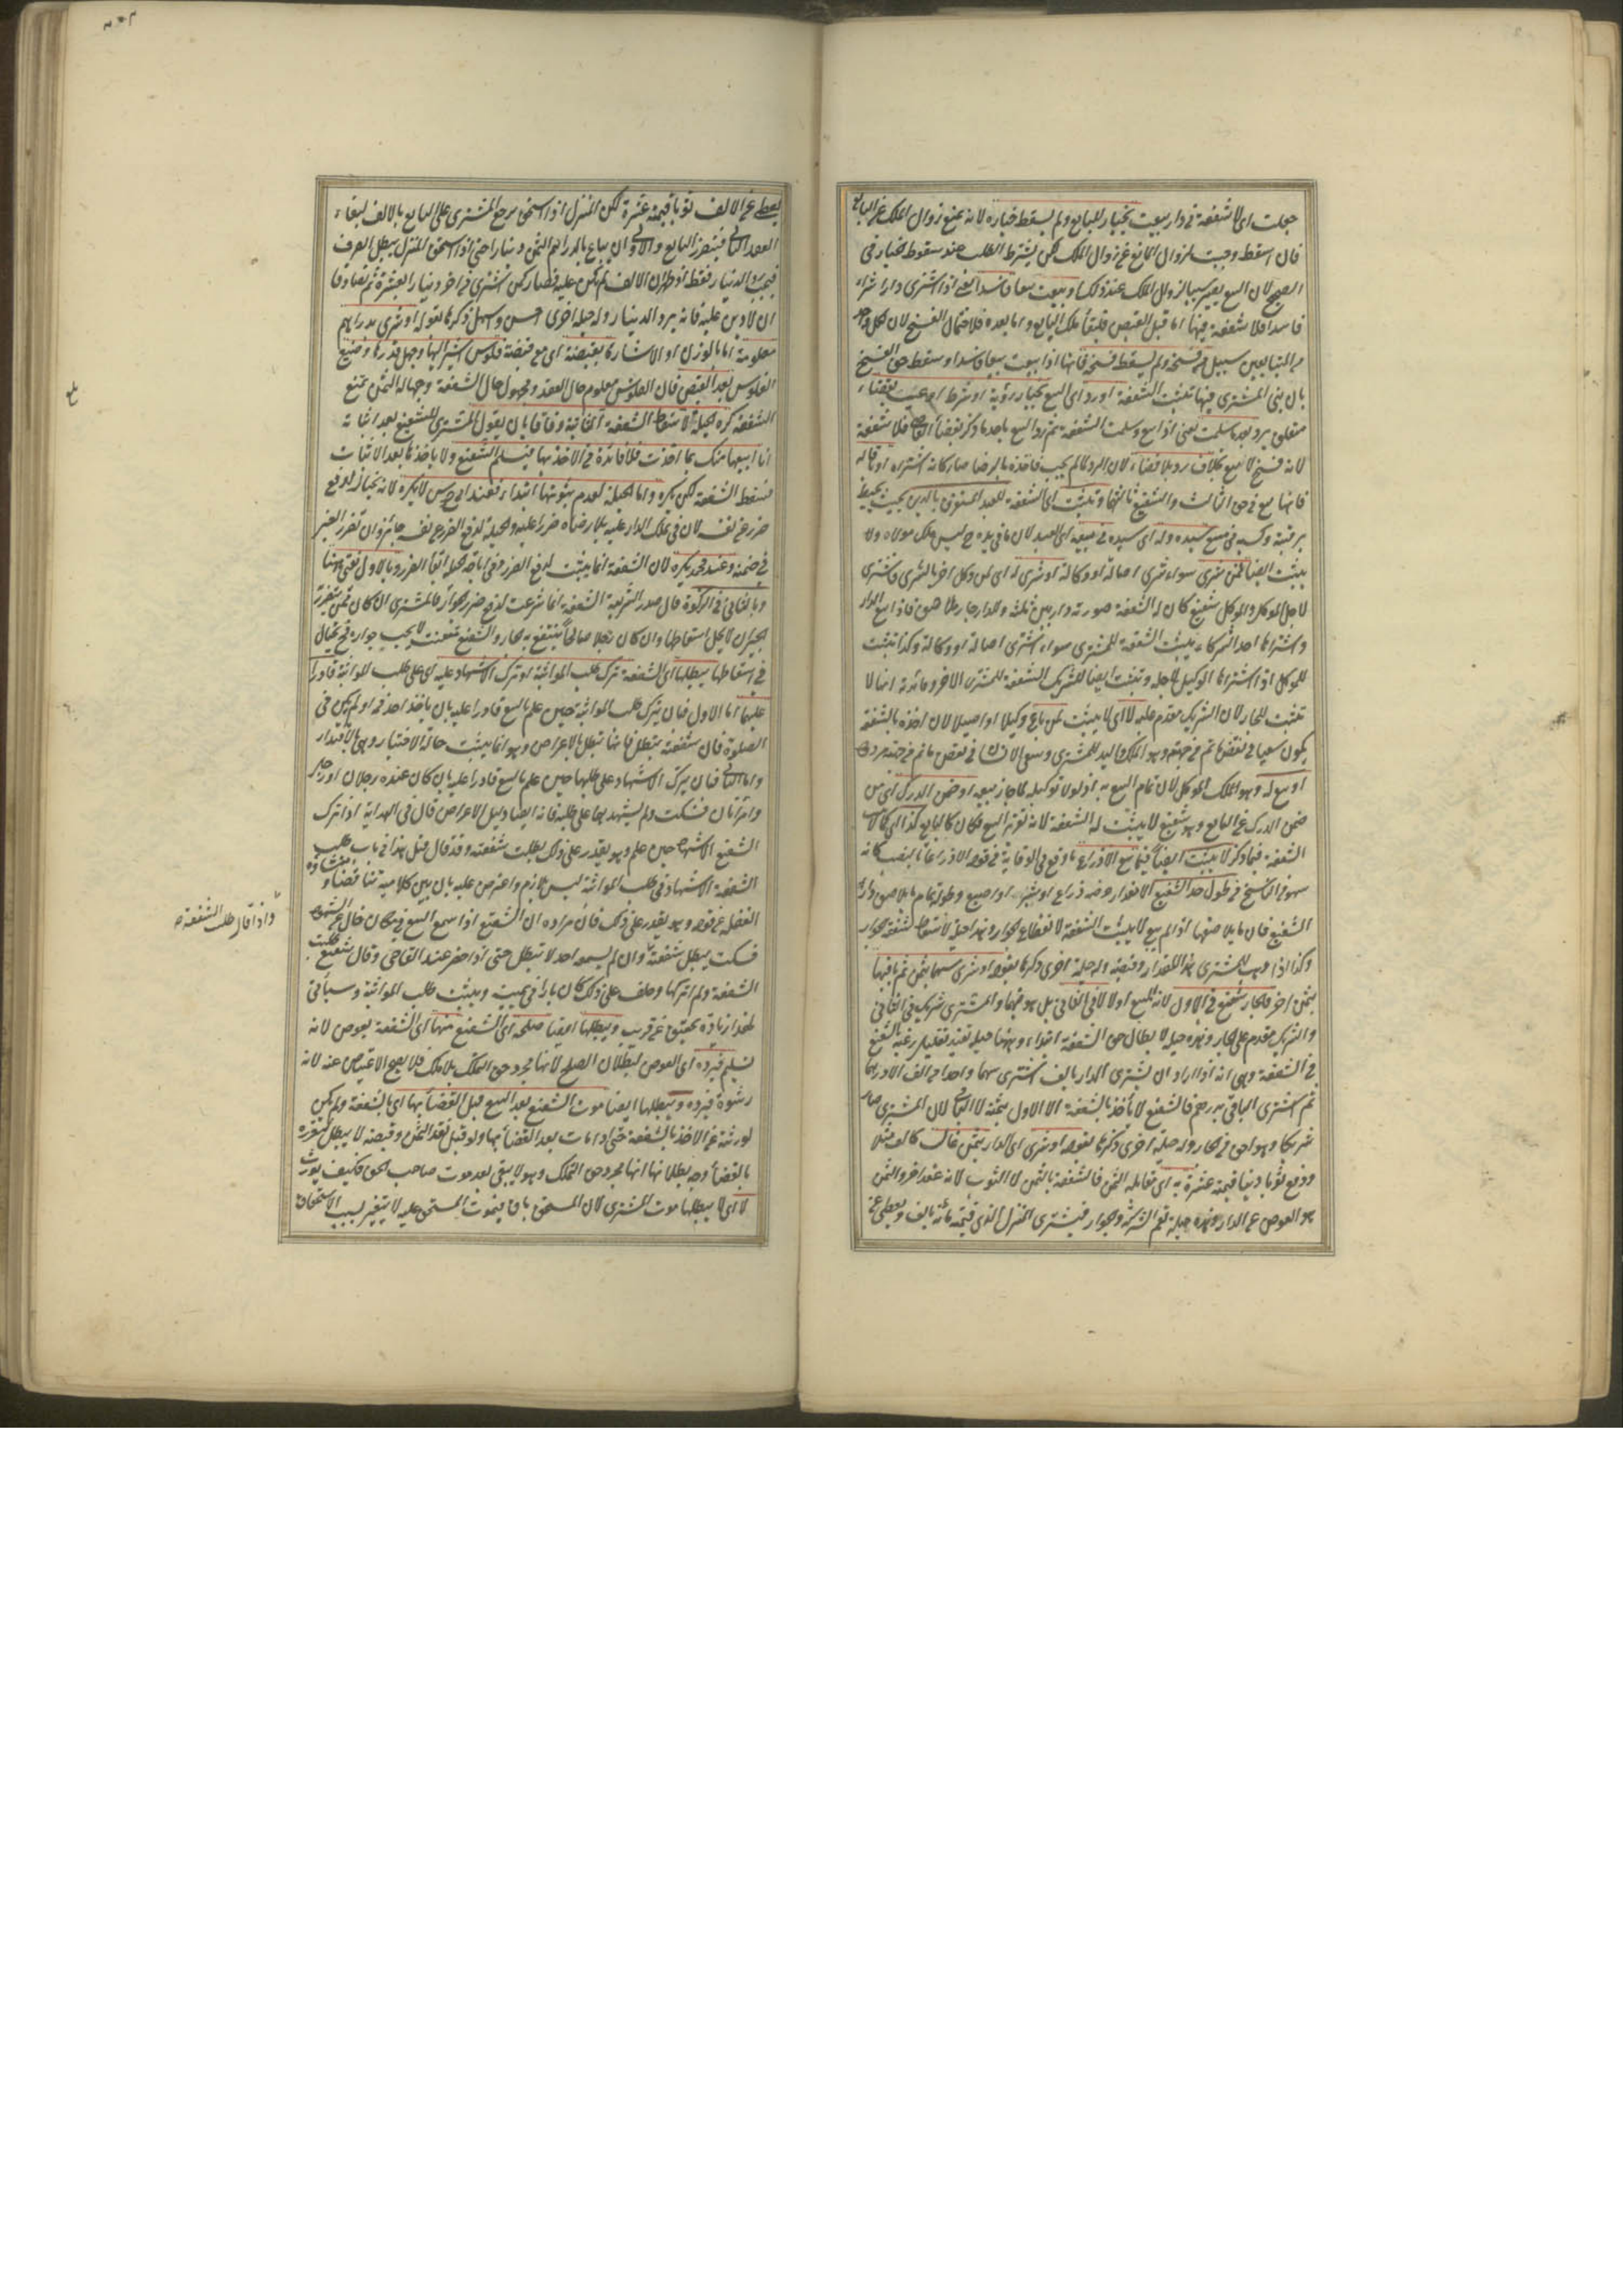 جعلت اى لا شفعة فى دار بيعت بخيار للبايع ولم يسقط خياره لانه يمنع زوال الملك عن البايع
فان اسقط وجبت لزوال المانع عن زوال الملك لكن يشترط الطلب عند سقوط الخيار فى
الصحيح لان البيع يصير سببا لزوال الملك عند ذلك او بيعت بيعا فاسدا يعنى اذا اشترى دارا شراء
فاسدا فلا شفعة فيها اما قبل القبض فلبقاء ملك البايع واما بعده فلاحتمال الفسخ لان لكل واحد
من المتبايعين سبيل من فسخه ولم يسقط فسخه فانها اذا بيعت بيعا فاسدا وسقط حق الفسخ
بان بنى المشترى فيها تثبت الشفعة او رد اى البيع بخيار رؤية او شرط او عيب بقضاء
متعلق برد بعد ما سلمت يعنى اذا بيع وسلمت الشفعة ثم رد البيع باحد ما ذكر بقضاء القاضى فلا شفعة
لانه فسخ لا بيع بخلاف رد بلا قضاء لان الرد لما لم يجب فاخذه بالرضا صار كانه اشتراه او اقاله
فانها بيع فى حق الثالث والشفيع ثالثهما وتثبت اى الشفعة للعبد المديون بالدين بحيث يحيط
برقبته وكسبه فى مبيع سيده وله اى سيده فى مبيعه اى العبد لان ما فى يده ح ليس ملك مولاه ولا
يثبت ايضا لمن شرى سواء شرى اصالة او وكالة او شرى له اى لمن وكل اخر بالشرى فاشترى
لاجل الموكل والموكل شفيع كان له الشفعة صورته دار بين ثلثة وللدار جار ملاصق فاذا بيع الدار
واشتراها احد الشركاء يثبت الشفعة للمشترى سواء اشترى اصالة او وكالة وكذا تثبت
للموكل اذا اشتراها الوكيل لاجله وتثبت ايضا للشريك الشفعة للمشترى الاخر وفائدته انها لا
تثبت للجار لان الشريك مقدم عليه لا اى لا يثبت لمن باع وكيلا او اصيلا لان اخذه بالشفعة
يكون سعيا فى نقض ما تم من جهته وهو الملك واليد للمشترى وسعى الانسان فى نقض ما تم من جهته مردود
او بيع له وهو الملك الموكل لان تمام البيع به اذ لولا توكيله لما جاز بيعه او ضمن الدرك اى من
ضمن الدرك عن البايع وهو شفيع لا يثبت له الشفعة لانه تقرير البيع فكان كالبايع كذا فى
الشفعة فيما ذكر لا يثبت ايضا فيما بيع الا ذراع ما وقع فى الوقاية من قوله الا ذراعا بالنصب كانه
سهو من الناسخ فى طول حد الشفيع الا مقدار عرضه ذراع او شبر او اصبع وطوله تمام ما يلاصق دار
الشفيع فان ما يلاصقها اذا لم يبع لا يثبت الشفعة لانقطاع الجوار وهذا حيلة لاسقاط شفعة الجوار
وكذا اذا وهب للمشترى هذا المقدار وقبضه وله حيلة اخرى ذكرها بقوله او شرى سهما بثمن ثم باقيها
بثمن اخر فالجار شفيع فى الاول لانه المبيع اولا لا فى الثانى بل هو فيهما والمشترى شريك فى الثانى
والشريك مقدم على الجار وهذه حيلة لابطال حق الشفعة ابتداء وههنا حيلة تفيد تقليل رغبة الشفيع
فى الشفعة وهى انه اذا اراد ان يشترى الدار بالف اشترى سهما واحدا من الف الا درهما
ثم اشترى الباقى بدرهم فالشفيع لا يأخذ بالشفعة الا الاول بثمنه لا الثانى لان المشترى صار
شريكا وهو احق من الجار وله حيلة اخرى ذكرها بقوله او شرى اى الدار بثمن غال كالف مثلا
ودفع ثوبا دنيا قيمته عشرة به اى بمقابلة الثمن فالشفعة بالثمن لا الثوب لانه عقد اخر والثمن
هو العوض عن الدار وهذه حيلة تعم الشركة والجوار فيشترى المنزل الذى قيمته مائة بالف ويعطى عن
يعطى عن الالف ثوبا قيمته عشرة لكن المنزل اذا استحق يرجع المشترى على البايع بالالف لبقاء
العقد الثانى فيتضرر البايع والاولى ان يباع بالدراهم الثمن دينارا حتى اذا استحق المنزل يبطل الصرف
فيجب رد الدينار فقط اذ ظهر ان الالف لم يكن عليه فصار كمن اشترى من اخر دينارا بعشرة ثم تصادقا
ان لا دين عليه فانه يرد الدينار وله حيلة اخرى احسن واسهل ذكرها بقوله او شرى بدراهم
معلومة اما بالوزن او الاشارة بقبضة اى مع قبضة فلوس اشير اليها وجهل قدرها وضيع
الفلوس بعد القبض فان الفلوس معلوم حال العقد ومجهول حال الشفعة وجهالة الثمن تمنع
الشفعة كره الحيلة لاسقاط الشفعة الثابتة وفاقا بان يقول المشترى للشفيع بعد اثباته
انا ابيعها منك بما اخذت فلا فائدة فى الاخذ بها فيسلم الشفيع ولا ياخذها بعد الاثبات
فتسقط الشفعة لكن يكره واما الحيلة لعدم ثبوتها ابتداء فعند ابى يوسف لا يكره لانه يحتال لدفع
ضرر عن نفسه لان فى تملك الدار عليه بلا رضاه ضررا عليه والحيلة لدفع الضرر عن نفسه جائز وان تضرر الغير
فى ضمنه وعند محمد يكره لان الشفعة انما يثبت لدفع الضرر ففى اباحة الحيلة ابقاء الضرر وبالاول يفتى ههنا
وبالثانى فى الزكوة قال صدر الشريعة الشفعة انما شرعت لدفع ضرر الجوار فالمشترى ان كان ممن يتضرر به
الجيران لا يحل اسقاطها وان كان رجلا صالحا ينتفع به الجار والشفيع متعنت لا يحب جواره فح يحتال
فى اسقاطها يبطلها اى الشفعة ترك طلب المواثبة او ترك الاشهاد عليه اى على طلب المواثبة قادرا
عليهما اما الاول فبان يترك طلب المواثبة حين علم بالبيع قادرا عليه بان ياخذ احد فمه او لم يكن فى
الصلوة فان شفعته يبطل فانها تبطل بالاعراض وهو انما يثبت حالة الاختيار وهى بالاقتدار
واما الثانى فبان يترك الاشهاد على طلبها حين علم بالبيع قادرا عليه بان كان عنده رجلان او رجل
وامرأتان فسكت ولم يشهد هما على طلبه فانه ايضا دليل الاعراض قال فى الهداية اذا ترك
الشفيع الاشهاد حين علم وهو يقدر على ذلك بطلت شفعته وقد قال قبل هذا فى باب طلب
الشفعة الاشهاد فى طلب المواثبة ليس بلازم واعترض عليه بان بين كلاميه تناقضا ومنشاؤه
الغفلة عن قوله وهو يقدر على ذلك فان مراده ان الشفيع اذا سمع البيع فى مكان خال عن الشهود
فسكت يبطل شفعته وان لم يسمعه احد لا تبطل حتى اذا حضر عند القاضى وقال طلبت
الشفعة ولم اتركها وحلف على ذلك كان بارا فى يمينه ويثبت طلب المواثبة وسيأتى
لهذا زيادة تحقيق عن قريب ويبطلها ايضا صلحه اى الشفيع منها اى الشفعة بعوض لانه
تسليم فيرده اى العوض لبطلان الصلح لانها مجرد حق التملك بلا ملك فلا يصح الاعتياض عنه لانه
رشوة فيرده ويبطلها ايضا موت الشفيع بعد البيع قبل القضاء بها اى بالشفعة ولم يكن
لورثته عن الاخذ بالشفعة حتى اذا مات بعد القضاء بها ولو قبل نقد الثمن وقبضه لا يبطل لتقرره
بالقضاء وجه بطلانها انها مجرد حق التملك وهو لا يبقى بعد موت صاحب الحق فكيف يورث
لا اى لا يبطلها موت المشترى لان المستحق باق فبموت المستحق عليه لا يتغير لسبب الاستحقاق
واذا قال طلب الشفعة